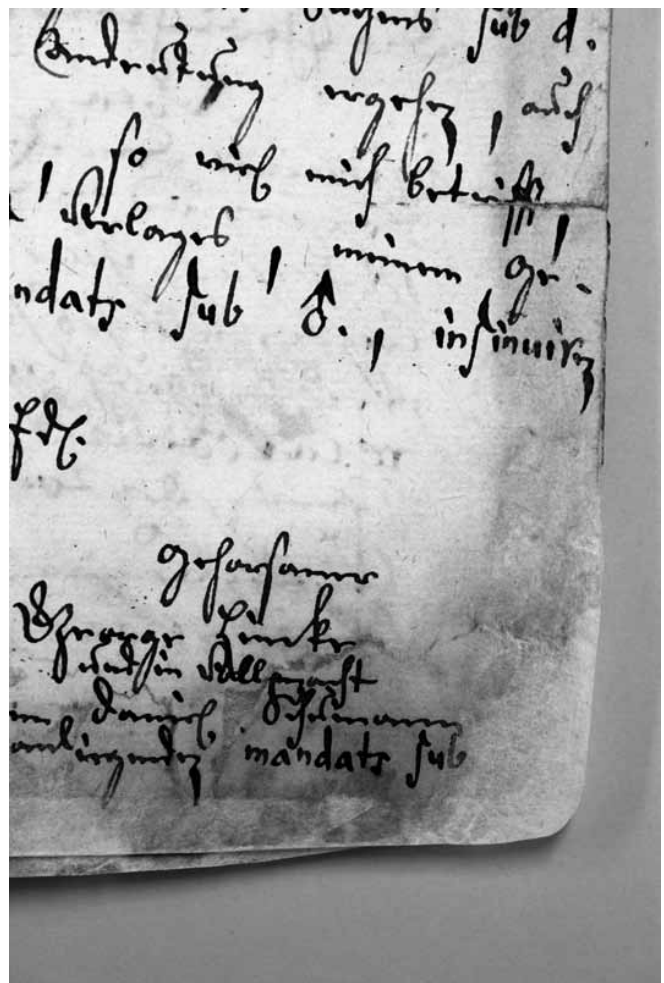 sub d.
ergehen, auch
so viel mich betrifft,
Verlages, meinem Ge-
ndats sub ♂., insinuiren
gehorsamer
George
und in Vollmacht
Daniel Schumann
anliegenden mandats sub